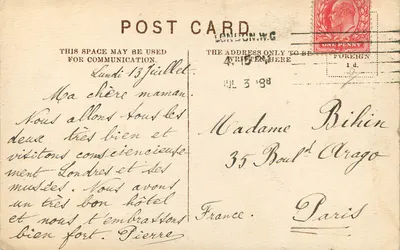 POST CARD
THIS SPACE MAY BE USED
FOR COMMUNICATION.
THE ADDRESS ONLY TO BE
WRITTEN HERE
LONDON. W.C
4.15 PM
ONE PENNY
FOREIGN
1d.
Lundi 13 Juillet.
Ma chère maman.
Nous allons tous les
deux très bien et
visitons consciencieuse-
ment Londres et ses
musées. Nous avons
un très bon hôtel
et nous t'embrassons
bien fort. Pierre
Madame Bihin
35 Boul.d Arago
Paris
France.